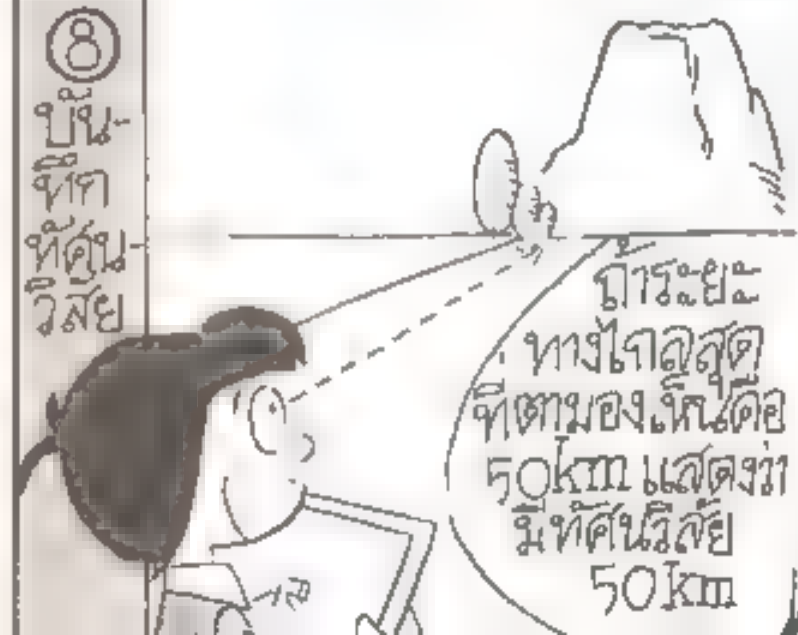 8
บัน-
ทึก
ทัศน-
วิสัย
ถ้าระยะ
ทางไกลสุด
ที่ตามองเห็นคือ
50km แสดงว่า
มีทัศนวิสัย
50km